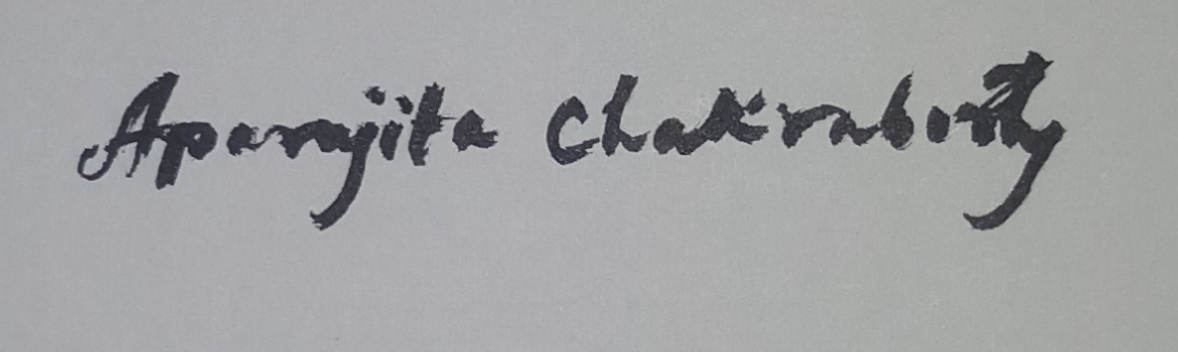 Aparajita Chakraborty